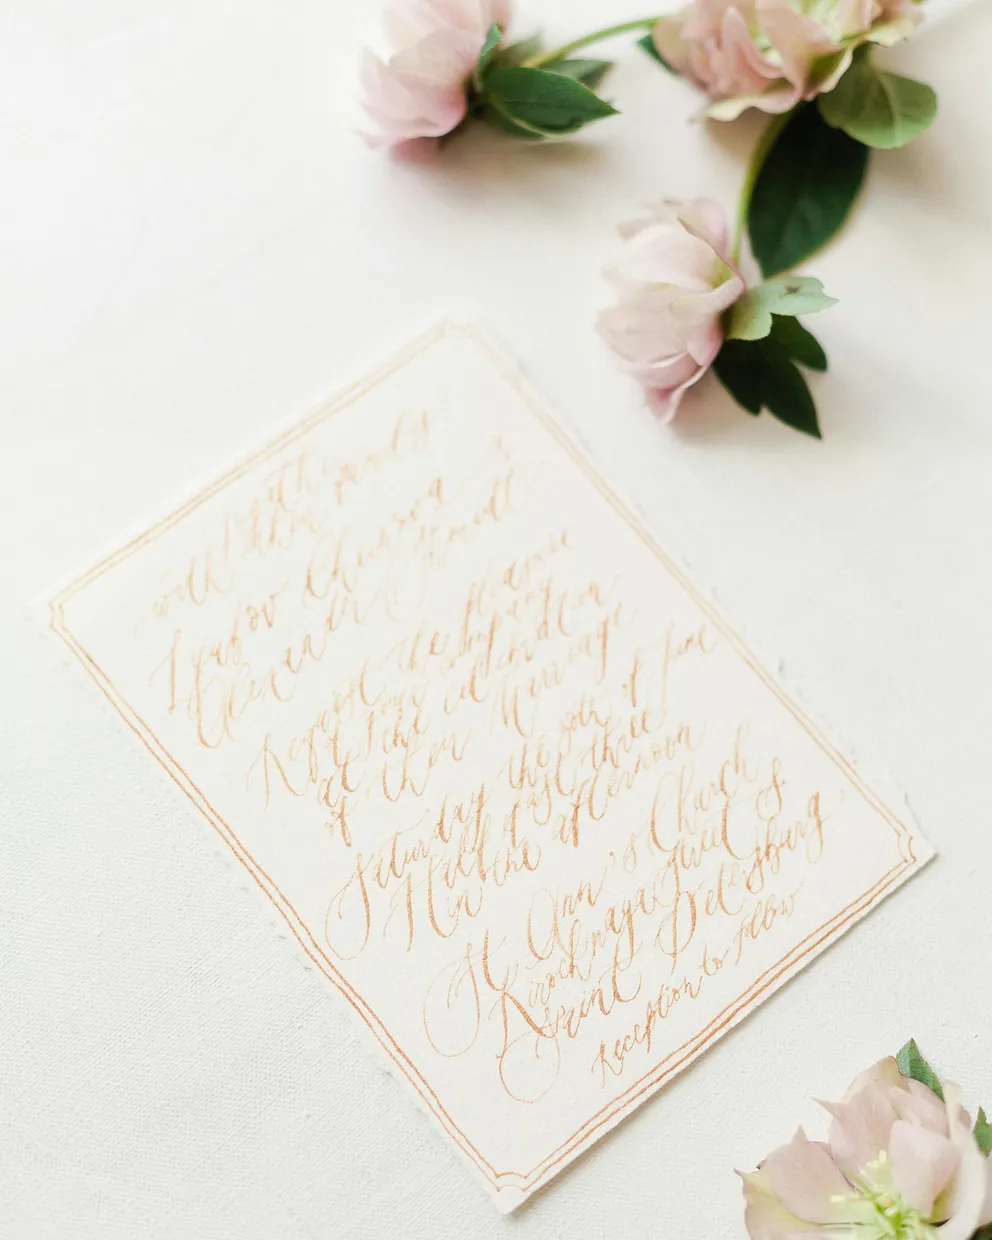 with their
Alexander
Request the pleasure
of your company
at the celebration
of their Marriage
Saturday the 30th of June
Half past three
in the afternoon
St. Ann's Church
Kirochnaya Street 8
Saint Petersburg
Reception to follow